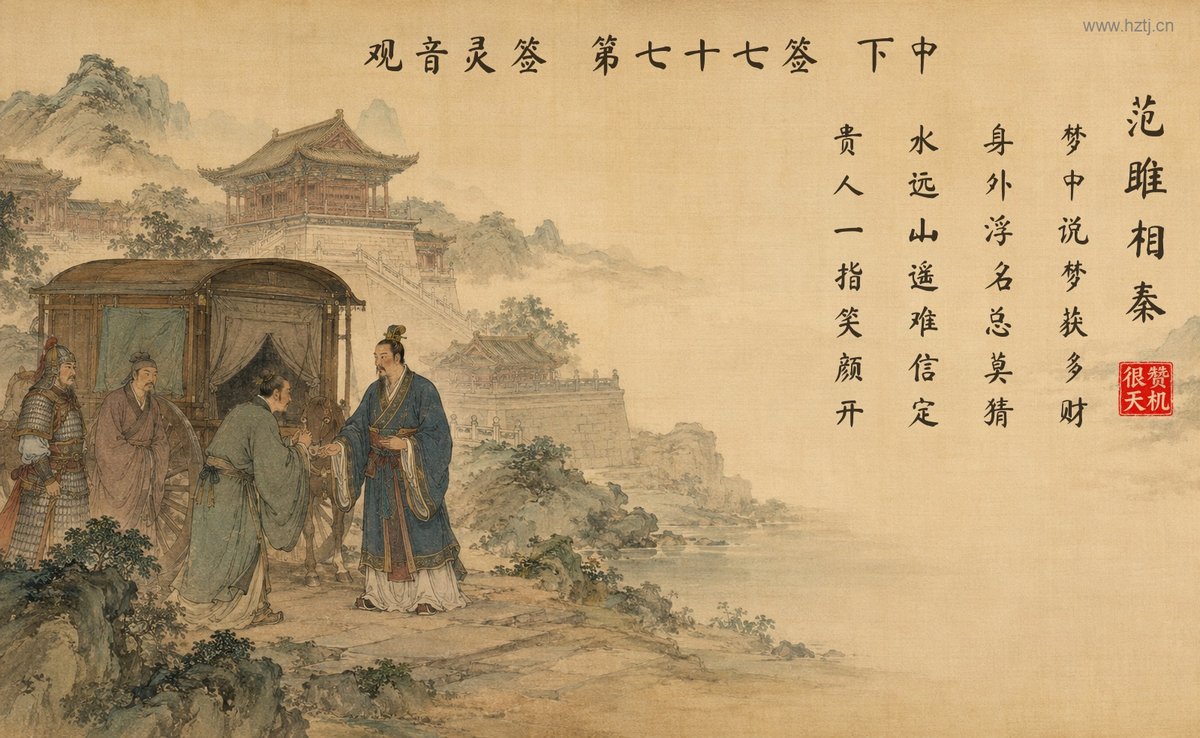 www.hztj.cn
观音灵签 第七十七签 下中
范雎相秦
梦中说梦获多财
身外浮名总莫猜
水远山遥难信定
贵人一指笑颜开
赞机
很天